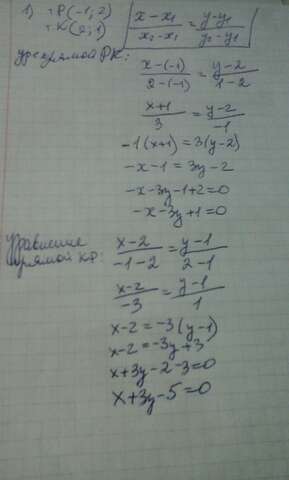 1) · P(-1; 2)
· K(2; 1)
(x-x₁)/(x₂-x₁) = (y-y₁)/(y₂-y₁)
ур-е прямой PK:
(x-(-1))/(2-(-1)) = (y-2)/(1-2)
(x+1)/3 = (y-2)/-1
-1(x+1) = 3(y-2)
-x-1 = 3y-2
-x-3y-1+2=0
-x-3y+1=0
Уравнение
прямой KP:
(x-2)/(-1-2) = (y-1)/(2-1)
(x-2)/-3 = (y-1)/1
x-2 = -3(y-1)
x-2 = -3y+3
x+3y-2-3=0
x+3y-5=0